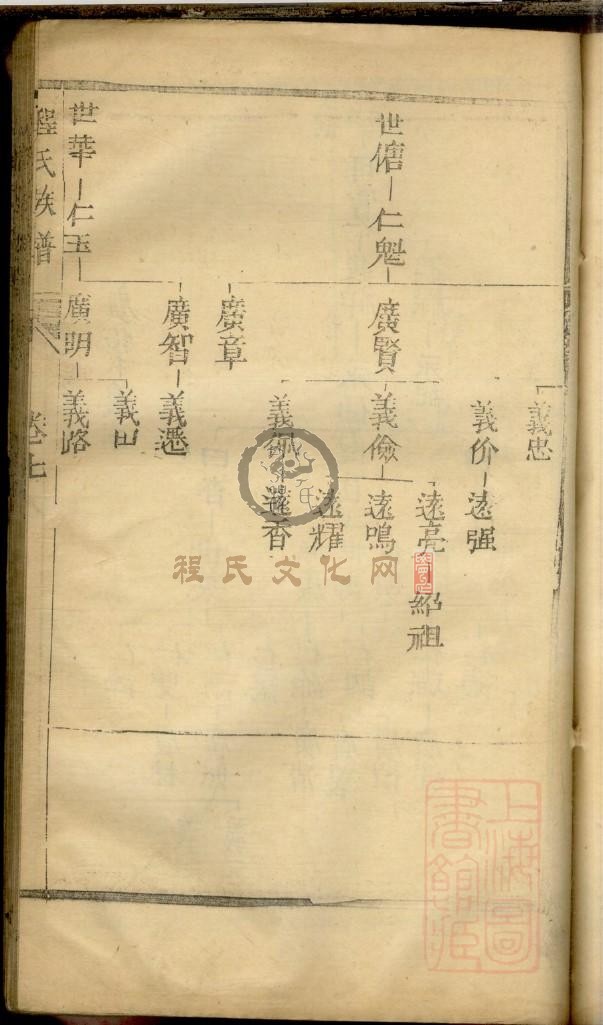 義忠
義价 遠强
遠亮 紹祖
世㑽 仁魁 廣賢 義儉 遠鳴
遠耀
遠香
廣章
廣智 義憑
義田
世華 仁玉 廣明 義路
程氏族譜 卷七
程氏文化网
上海圖
書館藏